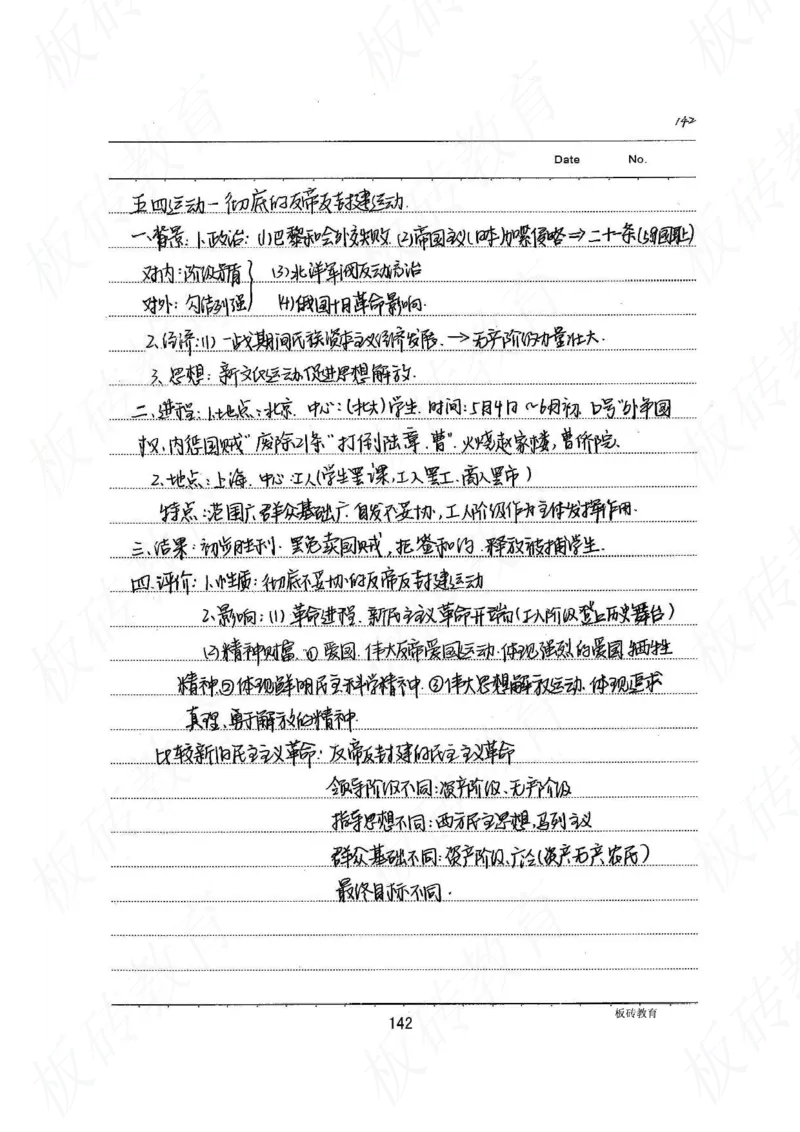 142
Date No.
五四运动-彻底的反帝反封建运动.
一、背景:1.政治:(1)巴黎和会外交失败.(2)帝国主义(日本)加紧侵略⇒二十一条(5.9国耻)
对内:阶级矛盾 (3)北洋军阀反动统治
对外:勾结列强 (4)俄国十月革命影响.
2.经济:(1)一战期间民族资本主义经济发展.→无产阶级力量壮大.
3.思想:新文化运动促进思想解放.
二、进程:1.地点:北京. 中心:(北大)学生. 时间:5月4日~6月初. 口号"外争国
权,内惩国贼""废除21条""打倒陆.章.曹".火烧赵家楼,曹侨院.
2.地点:上海. 中心:工人(学生罢课,工人罢工.商人罢市)
特点:范围广.群众基础广.自发不妥协,工人阶级作为主体发挥作用.
三、结果:初步胜利. 罢免卖国贼,拒签和约.释放被捕学生.
四.评价:1.性质:彻底不妥协的反帝反封建运动
2.影响:(1)革命进程.新民主主义革命开端(工人阶级登上历史舞台)
(2)精神财富.①爱国.伟大反帝爱国运动.体现强烈的爱国.牺牲
精神.②体现鲜明民主科学精神.③伟大思想解放运动.体现追求
真理.勇于解放的精神.
比较新旧民主主义革命:反帝反封建的民主主义革命
领导阶级不同:资产阶级、无产阶级
指导思想不同:西方民主思想,马列主义
群众基础不同:资产阶级、广泛(资产.无产.农民)
最终目标不同.
142
板砖教育